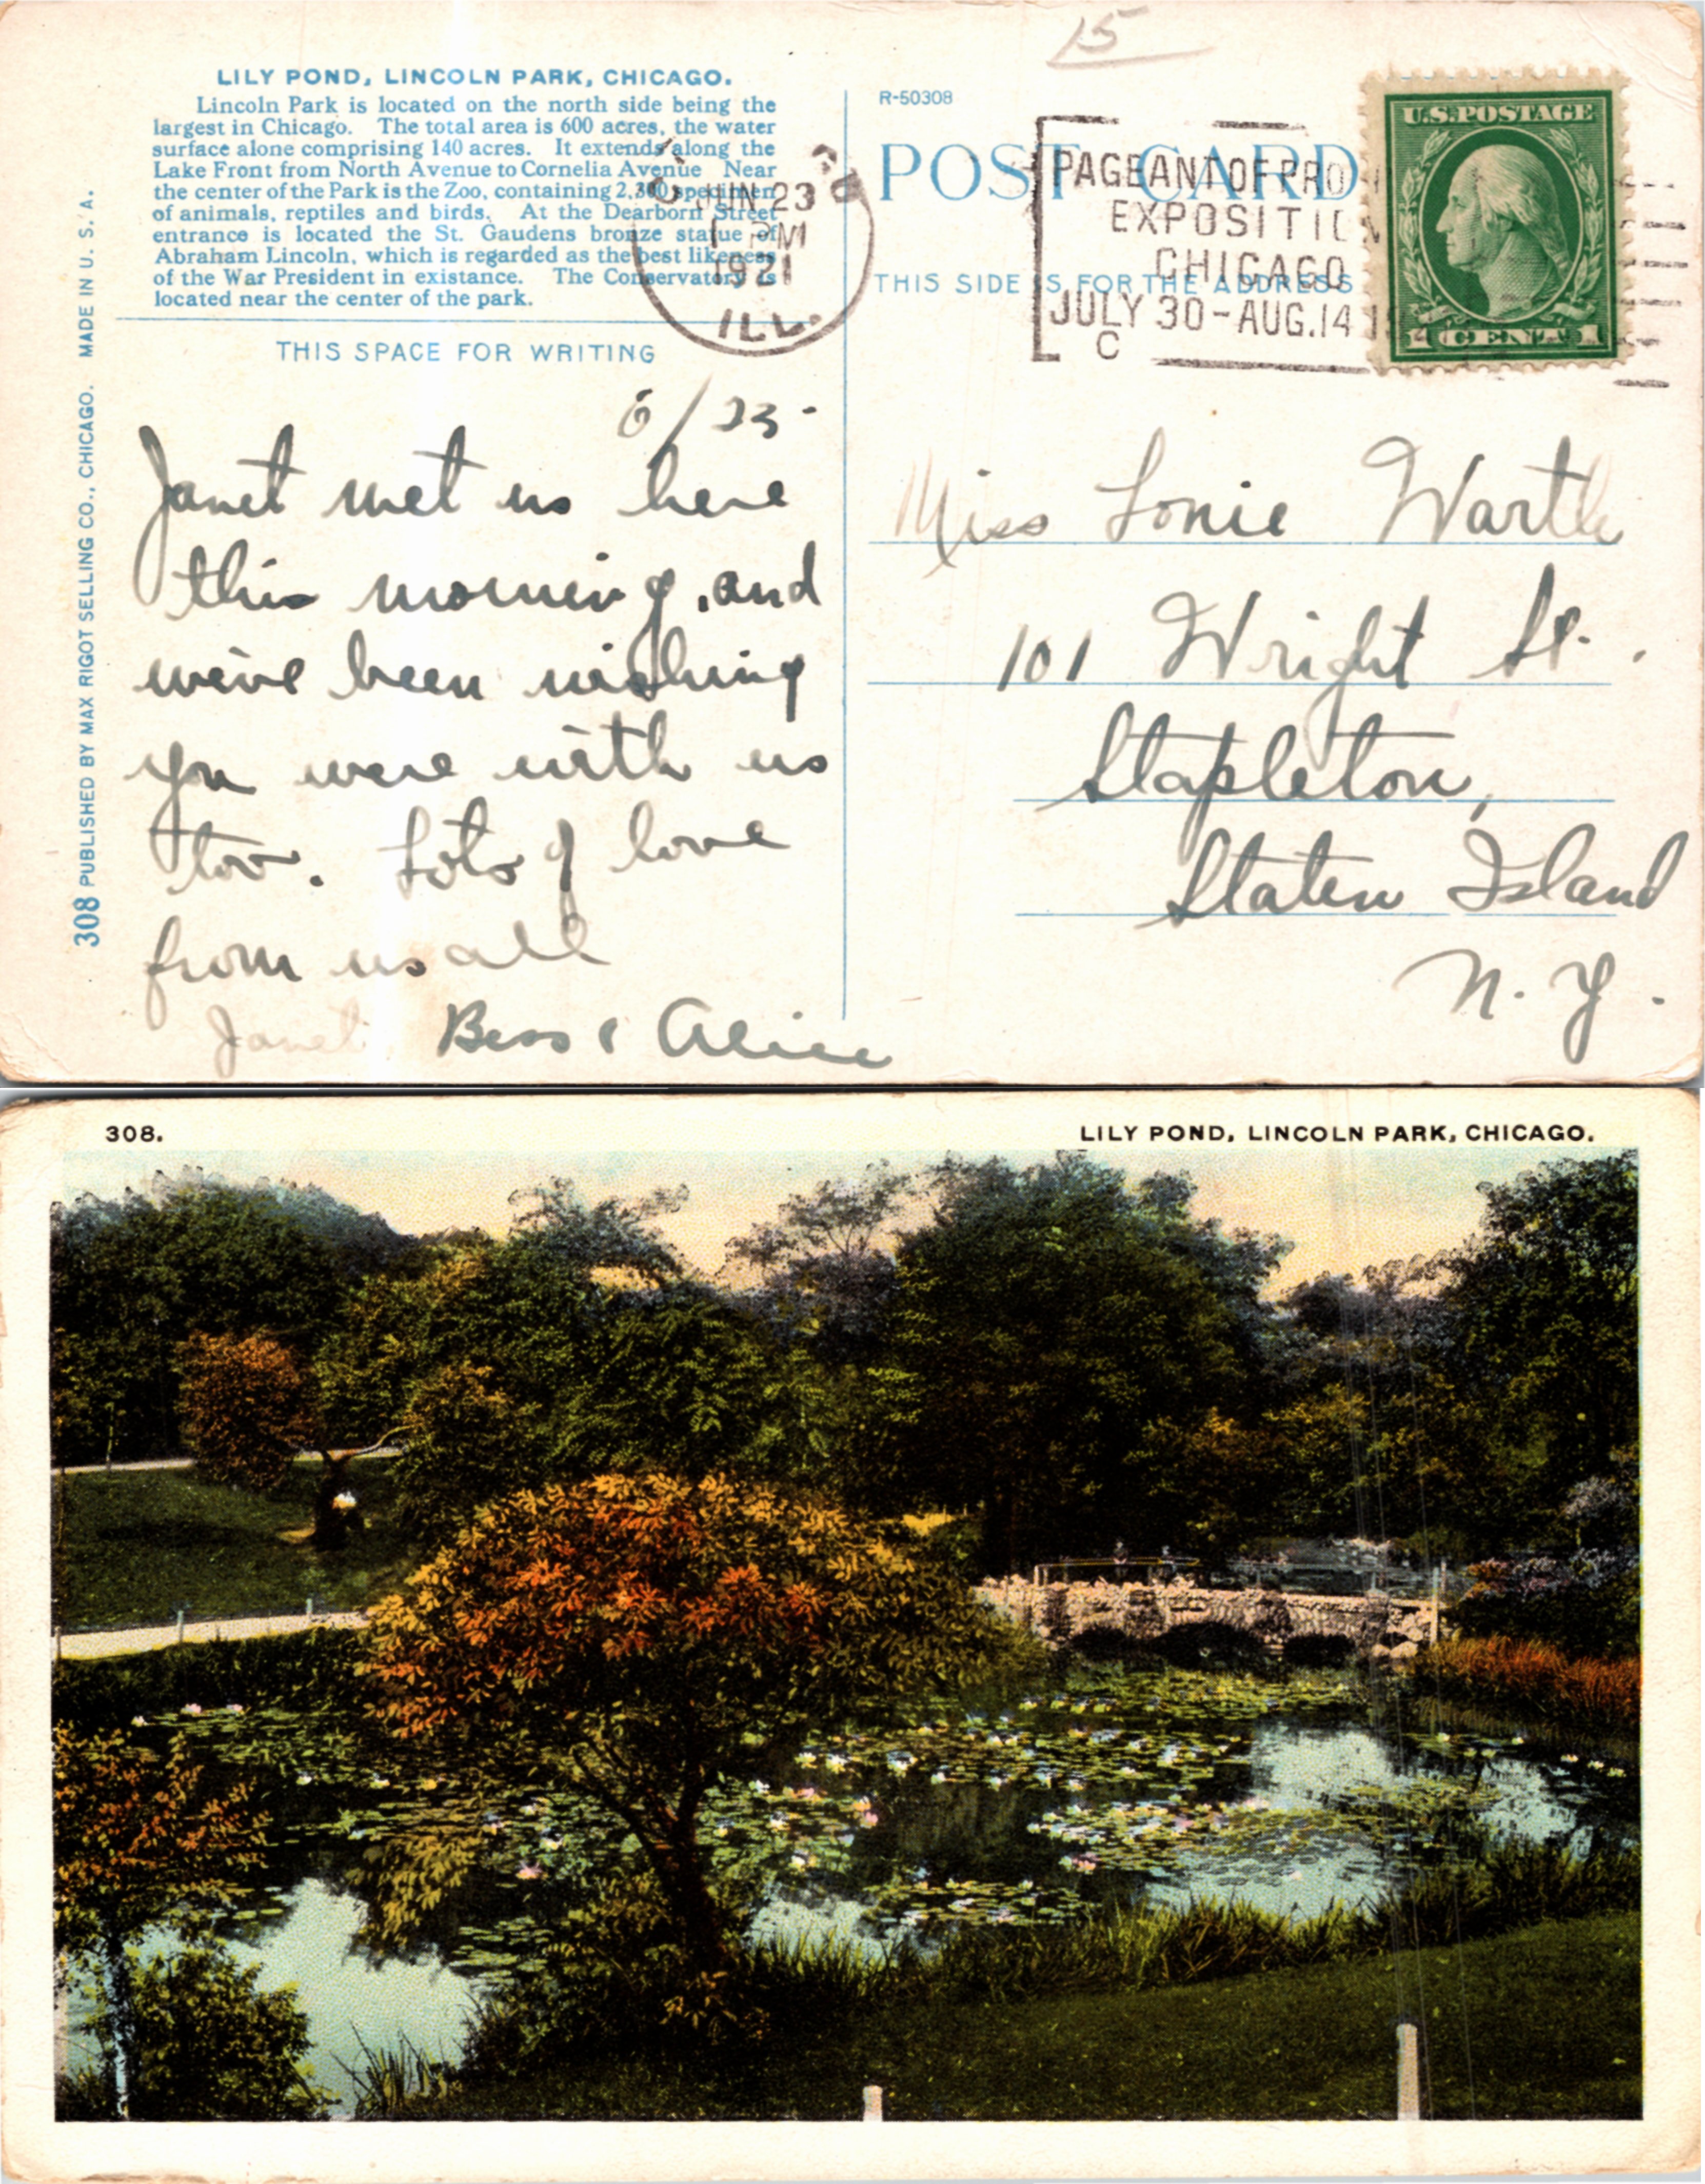 15
LILY POND, LINCOLN PARK, CHICAGO.
Lincoln Park is located on the north side being the
largest in Chicago. The total area is 600 acres, the water
surface alone comprising 140 acres. It extends along the
Lake Front from North Avenue to Cornelia Avenue Near
the center of the Park is the Zoo, containing 2,300 specimen
of animals, reptiles and birds. At the Dearborn Street
entrance is located the St. Gaudens bronze statue of
Abraham Lincoln, which is regarded as the best likeness
of the War President in existance. The Conservatory is
located near the center of the park.
THIS SPACE FOR WRITING
308 PUBLISHED BY MAX RIGOT SELLING CO., CHICAGO. MADE IN U. S. A.
JUN 23
1 PM
1921
ILL.
R-50308
POST CARD
THIS SIDE IS FOR THE ADDRESS
PAGEANT OF PRO
EXPOSITI
CHICAGO
JULY 30-AUG.14
C
U.S. POSTAGE
1 CENT 1
6/23-
Janet met us here
this morning, and
we've been wishing
you were with us
too. Lots of love
from us all
Janet Bess & Alice
Miss Lonie Warth
101 Wright St.
Stapleton,
Staten Island
N. Y.
308.
LILY POND, LINCOLN PARK, CHICAGO.